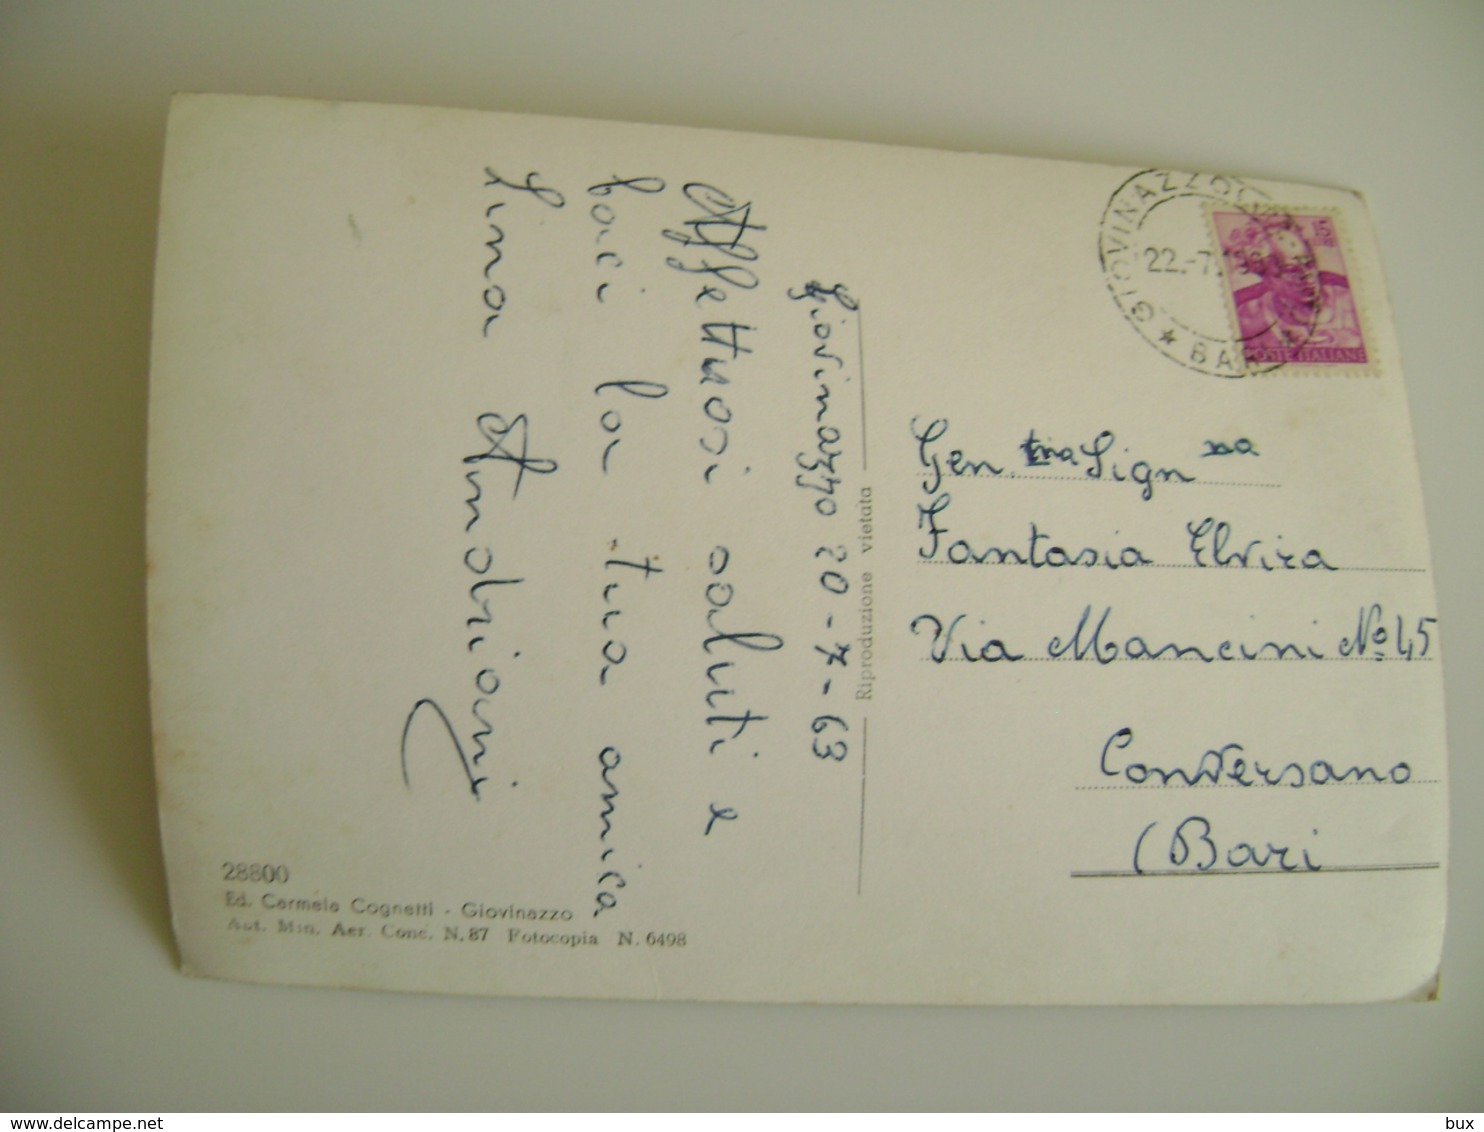 Giovinazzo 20-7-63
Affettuosi saluti e
baci la tua amica
Lina Andriani
Riproduzione vietata
GIOVINAZZO
22.-7.
BARI
15
POSTE ITALIANE
Gen.tma Sign.na
Fantasia Elvira
Via Mancini Nº 45
Conversano
(Bari
28800
Ed. Carmela Cognetti - Giovinazzo
Aut. Min. Aer. Conc. N. 87 Fotocopia N. 6498
www.delcampe.net
bux